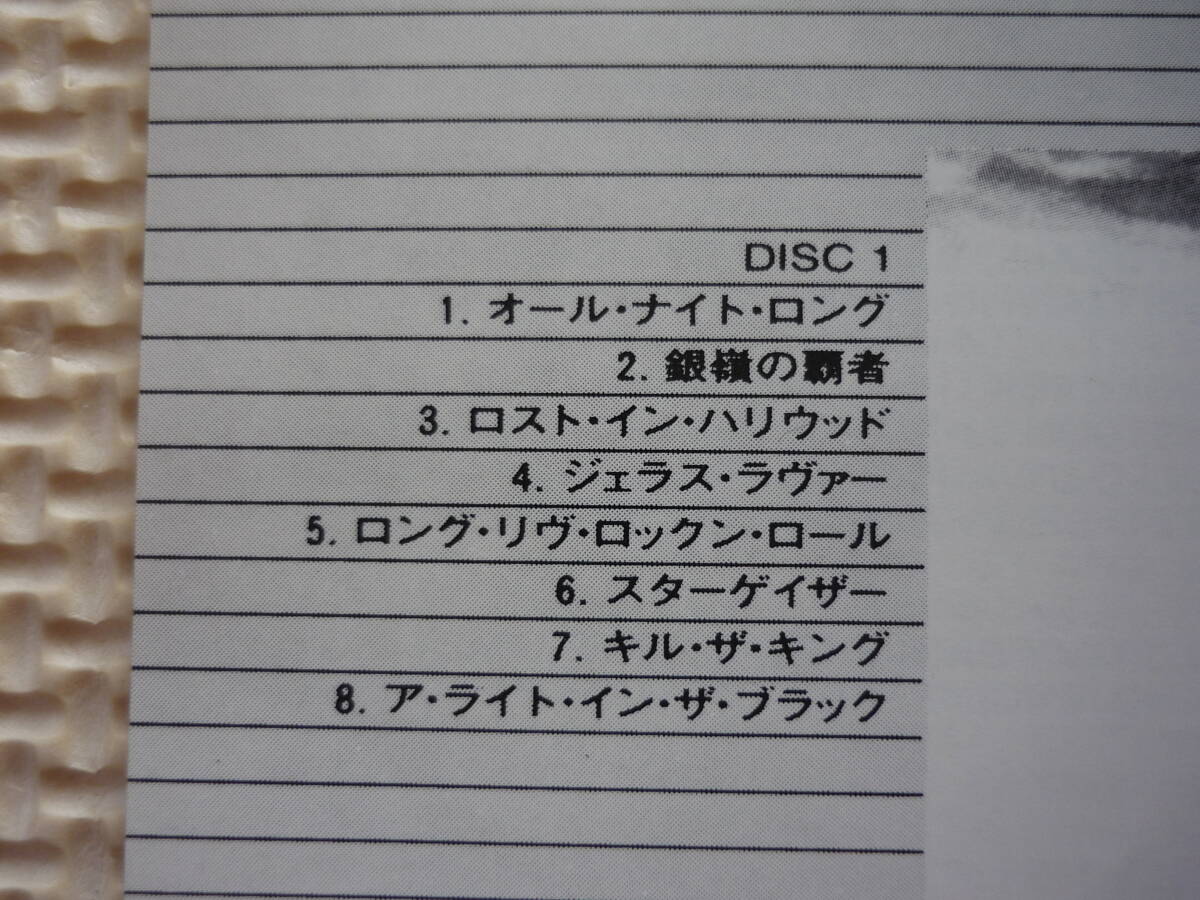 DISC 1
1. オール・ナイト・ロング
2. 銀嶺の覇者
3. ロスト・イン・ハリウッド
4. ジェラス・ラヴァー
5. ロング・リヴ・ロックン・ロール
6. スターゲイザー
7. キル・ザ・キング
8. ア・ライト・イン・ザ・ブラック